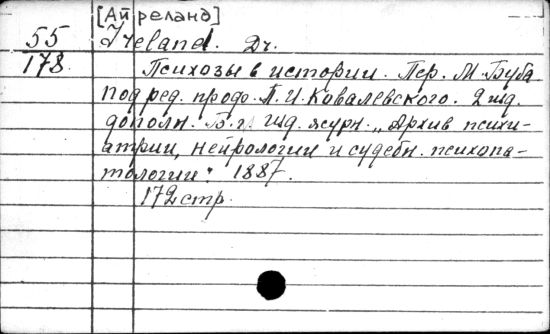 [Айреланд]
55 Ireland. Dr.
178 Психозы в истории. Пер. М. Буба
под ред. проф. П. И. Ковалевского. 2 изд.
дополн. Б. г. Изд. журн. „Архив психи-
атрии, нейрологии и судебн. психопа-
тологии" 1887.
172 стр.